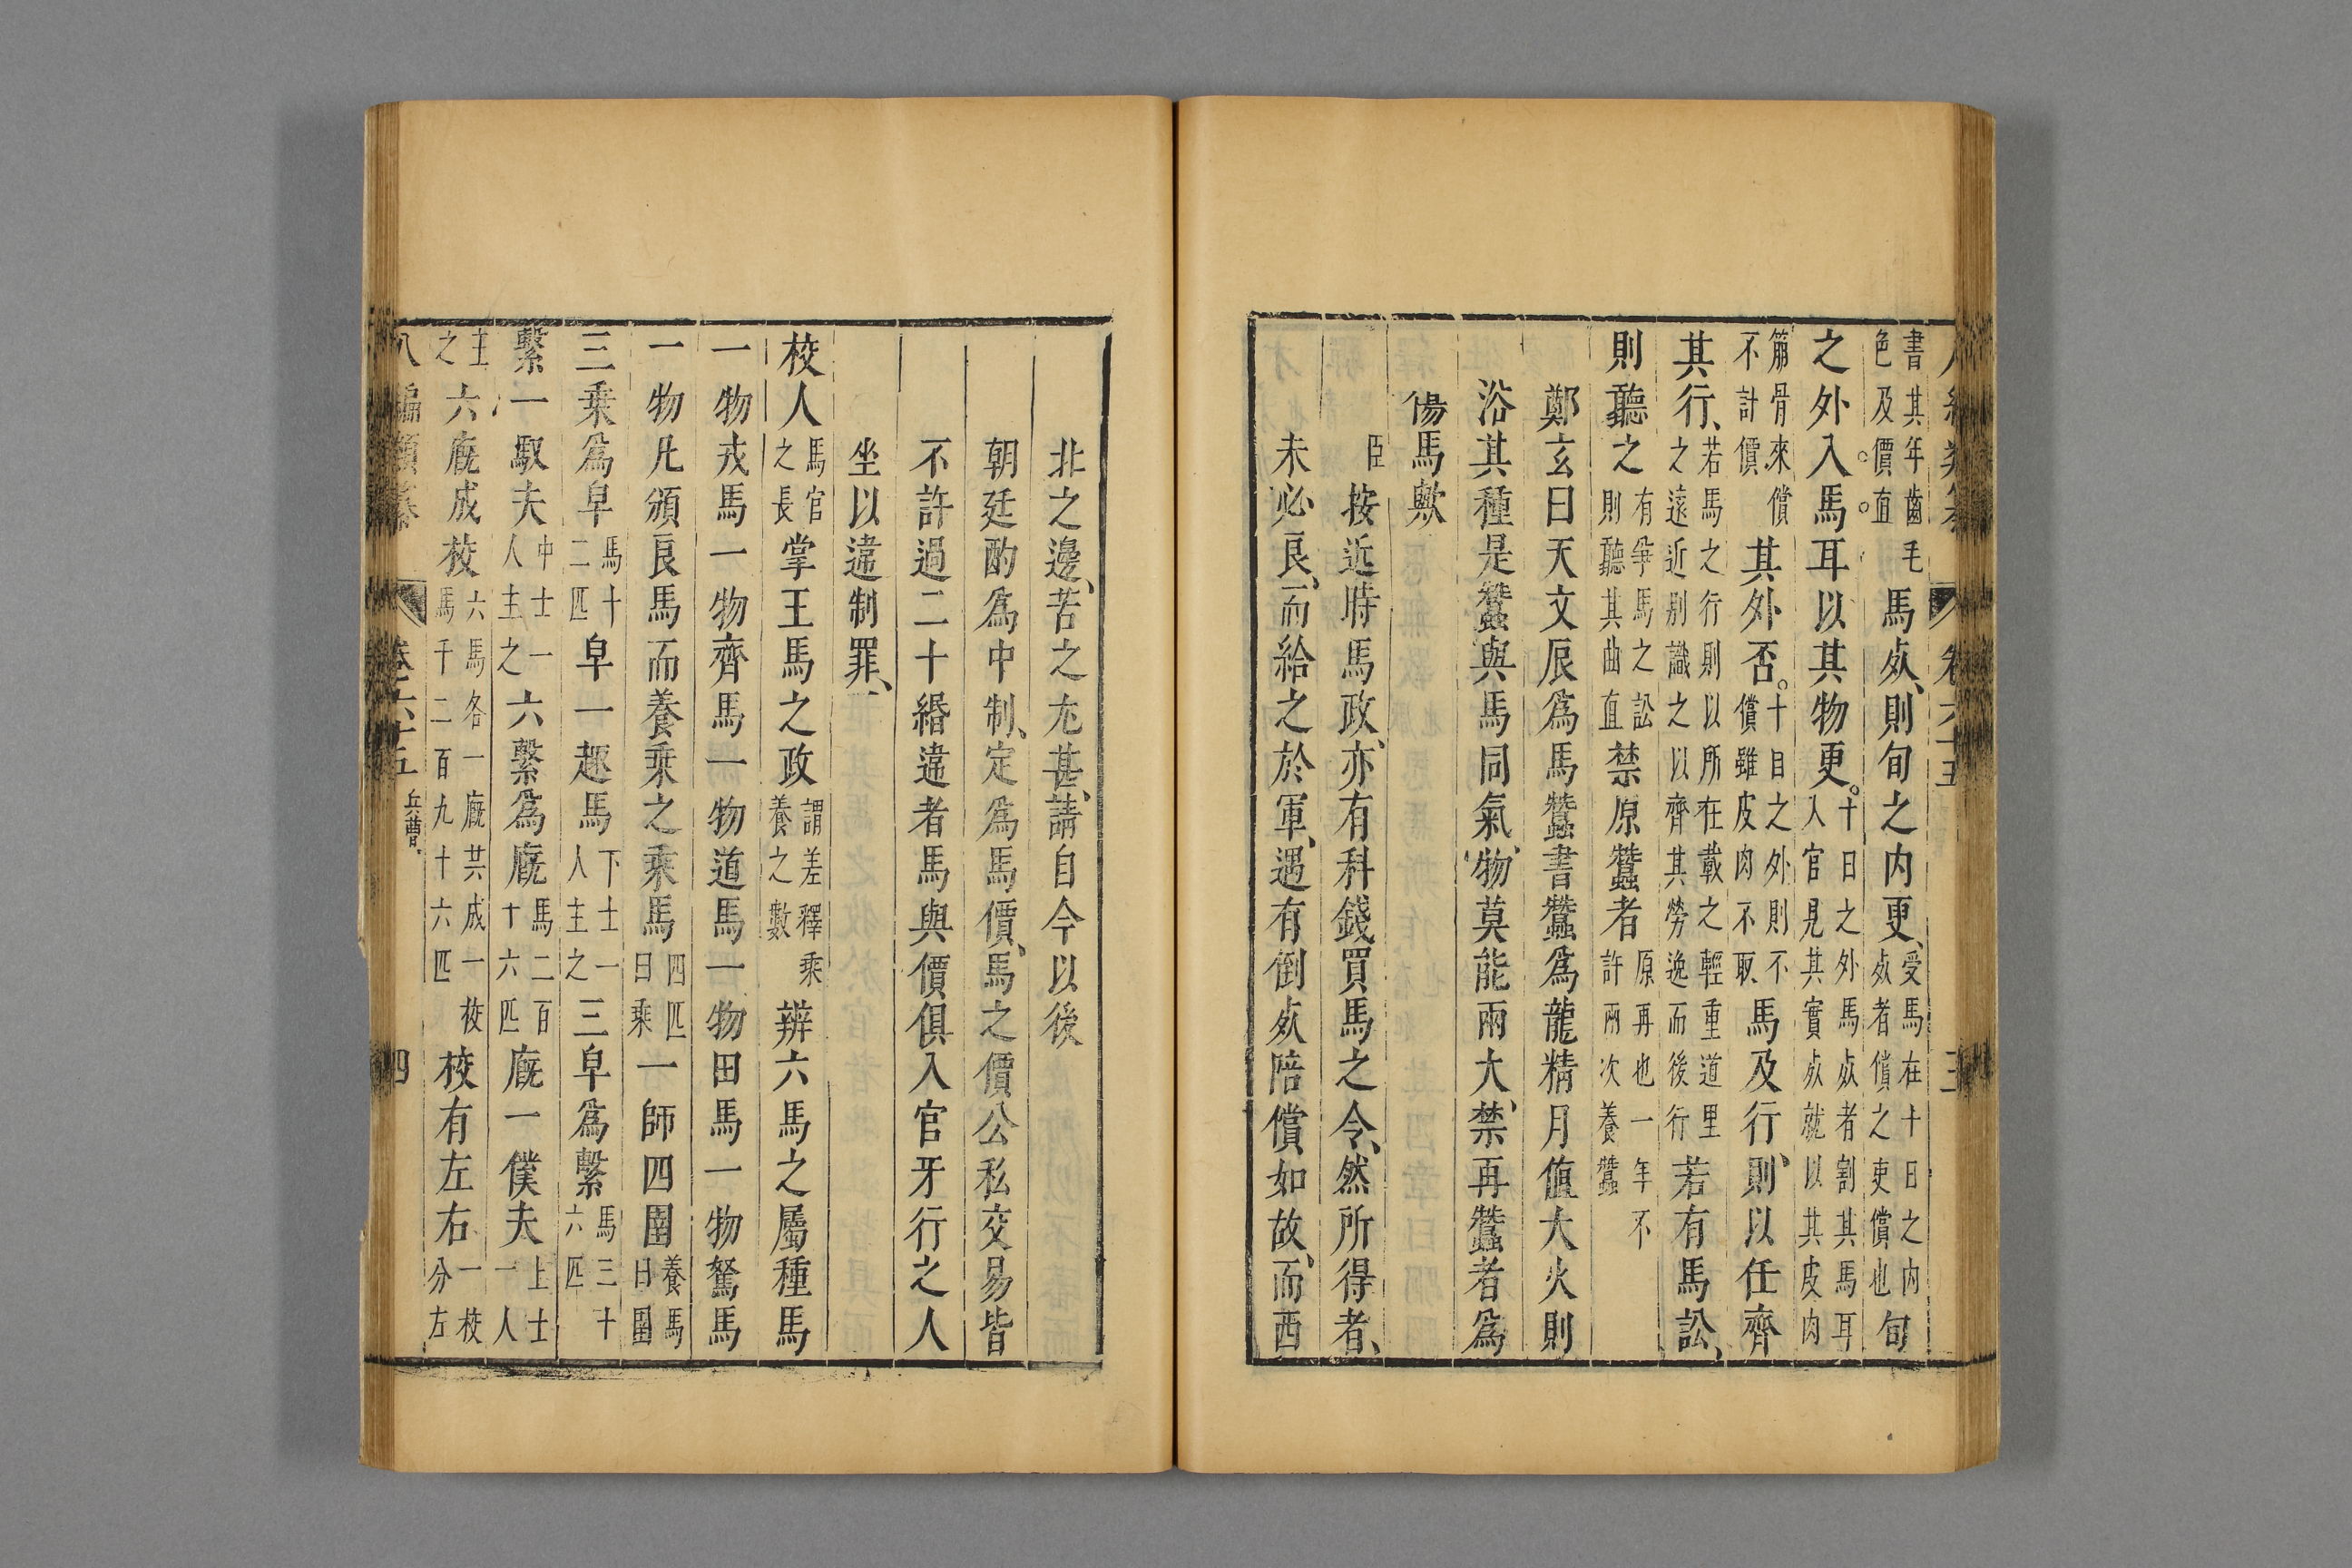 書其年齒毛
色及價直
馬㱠、則旬之内更、
受馬在十日之内
㱠者償之吏償也
旬
之外入。馬。耳以其物更。
十日之外馬㱠者割其馬耳
入官見其實㱠就以其皮肉
筋骨來償
不計價
其外否。
十日之外則不
償雖皮肉不取
馬及行、則以任齊
其行、
若馬之行則以所在載之輕重道里
之遠近別識之以齊其勞逸而後行
若有馬訟、
則聽之
有爭馬之訟
則聽其曲直
禁原蠶者
原再也一年不
許兩次養蠶
鄭玄曰天文辰爲馬蠶書蠶爲龍精月值大火則
浴其種是蠶與馬同氣、物莫能兩大、禁再蠶者爲
傷馬歟
臣按近時馬政、亦有科錢買馬之令、然所得者、
未必良、而給之於軍、遇有倒㱠陪償如故、而西
八編類纂 卷六十五 三
北之邊、苦之尤甚、請自今以後
朝廷酌爲中制、定爲馬價、馬之價公私交易皆
不許過二十緡違者馬與價俱入官牙行之人
坐以違制罪、
校人
馬官
之長
掌王馬之政
謂差釋乘
養之數
辨六馬之屬種馬
一物戎馬一物齊馬一物道馬一物田馬一物駑馬
一物凡頒良馬而養乘之乘馬
四匹
曰乘
一師四圉
養馬
曰圉
三乘爲皁
馬十
二匹
皁一趣馬
下士一
人主之
三皁爲繫
馬三十
六匹
繫一馭夫
中士一
人主之
六繫爲廐
馬二百
十六匹
廐一僕夫
上士
一人
主
之
六廐成校
六馬各一廐共成一校
馬千二百九十六匹
校有左右
一校
分左
八編類纂 卷六十五 兵曹、 四